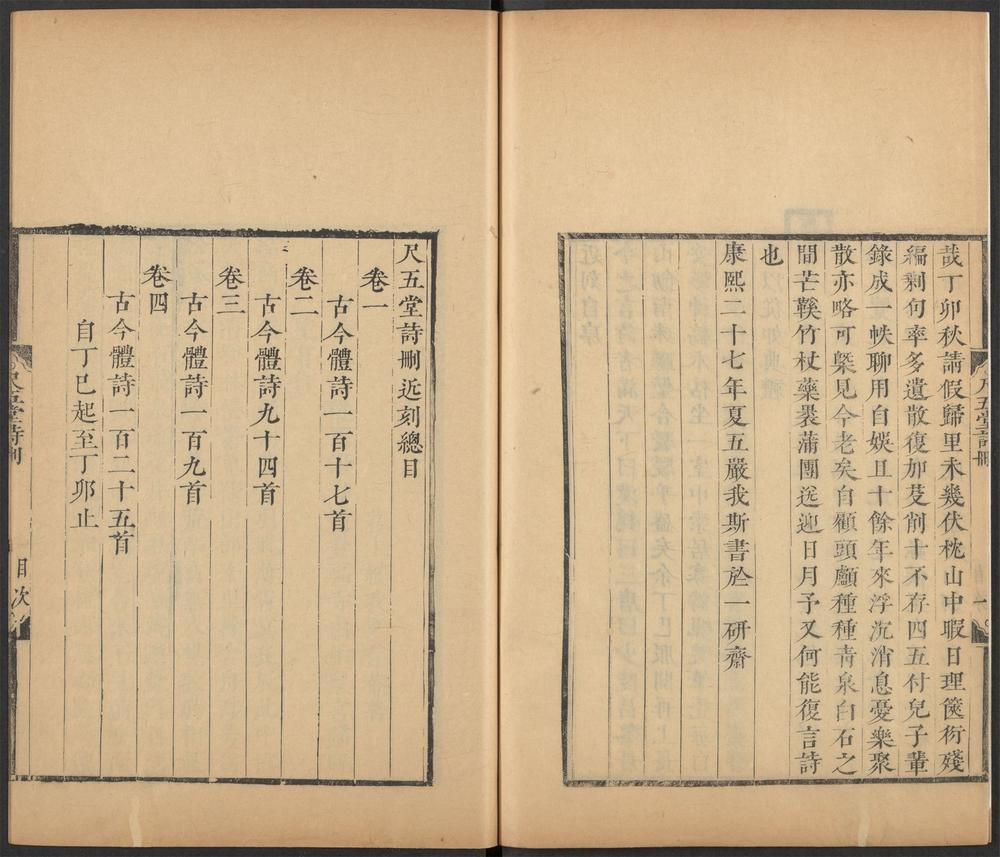 哉丁卯秋請假歸里未幾伏枕山中暇日理篋衍殘
編剩句率多遺散復加芟削十不存四五付兒子輩
錄成一帙聊用自娛且十餘年來浮沉消息憂樂聚
散亦略可槩見今老矣自顧頭顱種種青泉白石之
間芒鞵竹杖藥裹蒲團送迎日月予又何能復言詩
也
康熙二十七年夏五嚴我斯書於一研齋
尺五堂詩刪
一
尺五堂詩刪近刻總目
卷一
古今體詩一百十七首
卷二
古今體詩九十四首
卷三
古今體詩一百九首
卷四
古今體詩一百二十五首
自丁巳起至丁卯止
尺五堂詩刪
目次